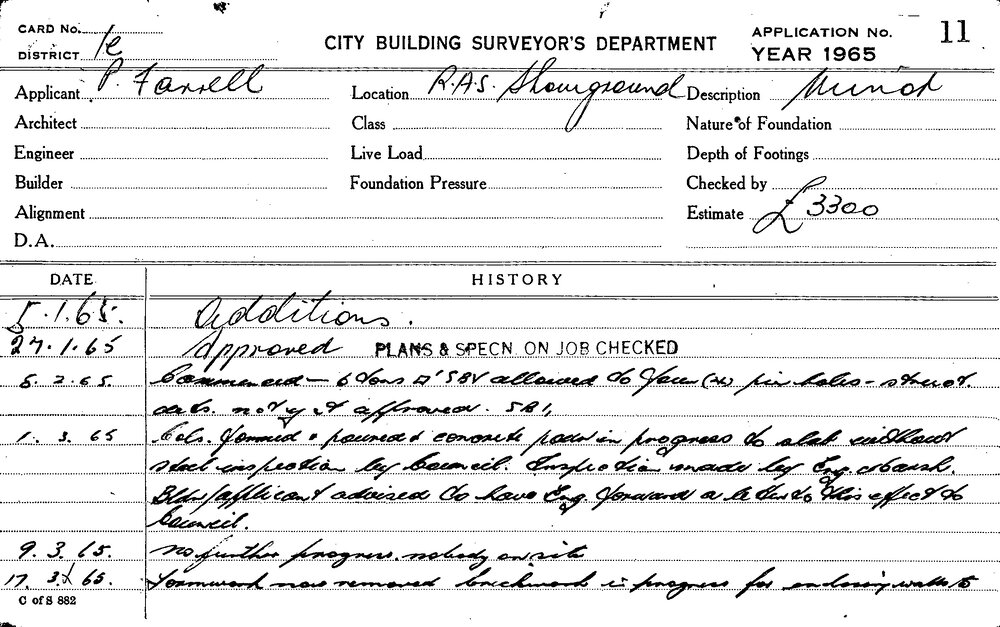 CARD No.
DISTRICT 1e
CITY BUILDING SURVEYOR'S DEPARTMENT
APPLICATION No. 11
YEAR 1965
Applicant P. Farrell
Location R.A.S. Showground
Description Minor
Architect
Class
Nature of Foundation
Engineer
Live Load
Depth of Footings
Builder
Foundation Pressure
Checked by
Alignment
Estimate £3300
D.A.
DATE HISTORY
5.1.65. Additions.
27.1.65 Approved PLANS & SPECN. ON JOB CHECKED
5.2.65. Commenced - 6 tons allowed to pier holes - struct.
not yet approved. SBI,
1.3.65 Cols. formed & poured & concrete pour in progress to slab without
steel inspection by Council. Inspection made by Eng. Marsh.
Bldr/applicant advised to have Eng. forward a letter to this effect to
Council.
9.3.65. no further progress. nobody on site
17.3.65. Formwork now removed brickwork in progress for enclosing walls to
C of S 882